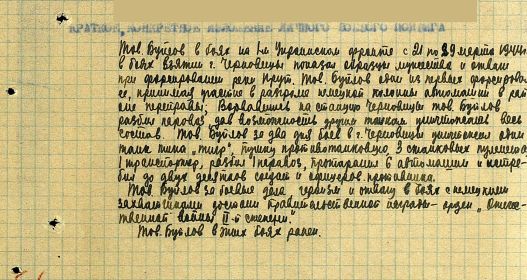 КРАТКОЕ, КОНКРЕТНОЕ ИЗЛОЖЕНИЕ ЛИЧНОГО БОЕВОГО ПОДВИГА
Тов. Буйлов в боях на 1м Украинском фронте с 21 по 29 марта 1944
в боях взятии г. Черновицы показал образцы мужества и отваги
при форсировании реки Прут. Тов. Буйлов один из первых форсировал
ее, принимая участие в разгроме немецкой колонны автомашин в рай
оне переправы; Ворвавшись на станцию Черновицы тов. Буйлов
разбил паровоз дав возможность другим танкам уничтожить весь
состав. Тов. Буйлов за два дня боев в г. Черновицы уничтожил один
танк типа „тигр", пушку противотанковую, 3 станковых пулемета
1 транспортер, разбил 1 паровоз, протаранил 6 автомашин и истре-
бил до двух десятков солдат и офицеров противника.
Тов. Буйлов за боевые дела, героизм и отвагу в боях с немецкими
захватчиками достоин правительственной награды - орден „Отече-
ственной войны II-й степени."
Тов. Буйлов в этих боях ранен.